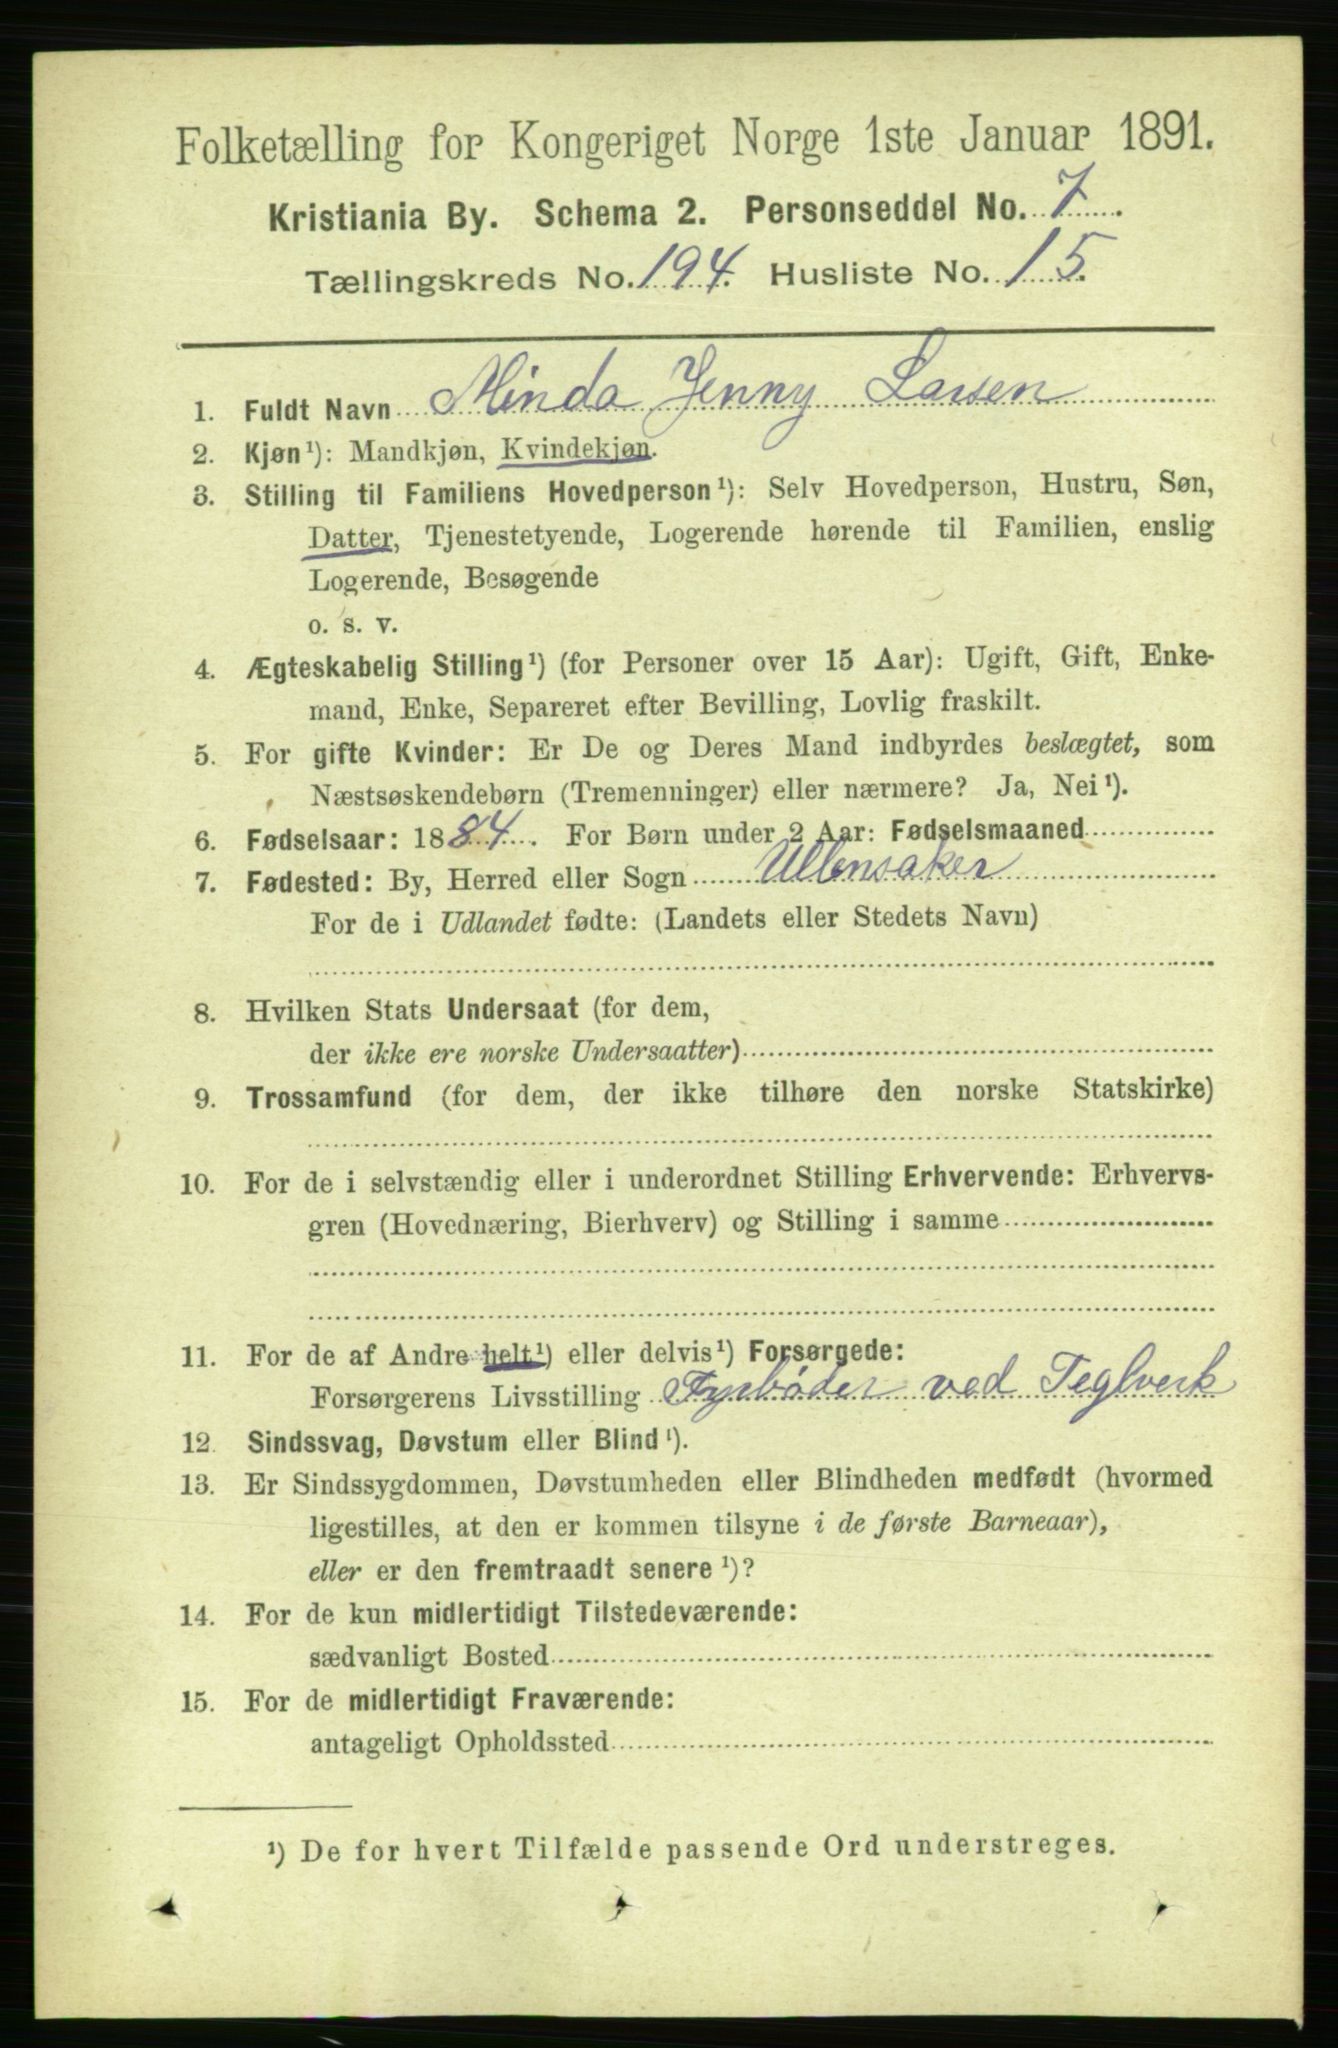 Folketælling for Kongeriget Norge 1ste Januar 1891.
Kristiania By. Schema 2. Personseddel No. 7
Tællingskreds No. 194. Husliste No. 15.
1. Fuldt Navn Minda Jenny Larsen
2. Kjøn¹): Mandkjøn, Kvindekjøn.
3. Stilling til Familiens Hovedperson¹): Selv Hovedperson, Hustru, Søn,
Datter, Tjenestetyende, Logerende hørende til Familien, enslig
Logerende, Besøgende
o. s. v.
4. Ægteskabelig Stilling¹) (for Personer over 15 Aar): Ugift, Gift, Enke-
mand, Enke, Separeret efter Bevilling, Lovlig fraskilt.
5. For gifte Kvinder: Er De og Deres Mand indbyrdes beslægtet, som
Næstsøskendebørn (Tremenninger) eller nærmere? Ja, Nei¹).
6. Fødselsaar: 1884. For Børn under 2 Aar: Fødselsmaaned
7. Fødested: By, Herred eller Sogn Ullensaker
For de i Udlandet fødte: (Landets eller Stedets Navn)
8. Hvilken Stats Undersaat (for dem,
der ikke ere norske Undersaatter)
9. Trossamfund (for dem, der ikke tilhøre den norske Statskirke)
10. For de i selvstændig eller i underordnet Stilling Erhvervende: Erhvervs-
gren (Hovednæring, Bierhverv) og Stilling i samme
11. For de af Andre helt¹) eller delvis¹) Forsørgede:
Forsørgerens Livsstilling Fyrbøder ved Teglverk
12 Sindssvag, Døvstum eller Blind¹).
13. Er Sindssygdommen, Døvstumheden eller Blindheden medfødt (hvormed
ligestilles, at den er kommen tilsyne i de første Barneaar),
eller er den fremtraadt senere¹)?
14. For de kun midlertidigt Tilstedeværende:
sædvanligt Bosted
15. For de midlertidigt Fraværende:
antageligt Opholdssted
¹) De for hvert Tilfælde passende Ord understreges.